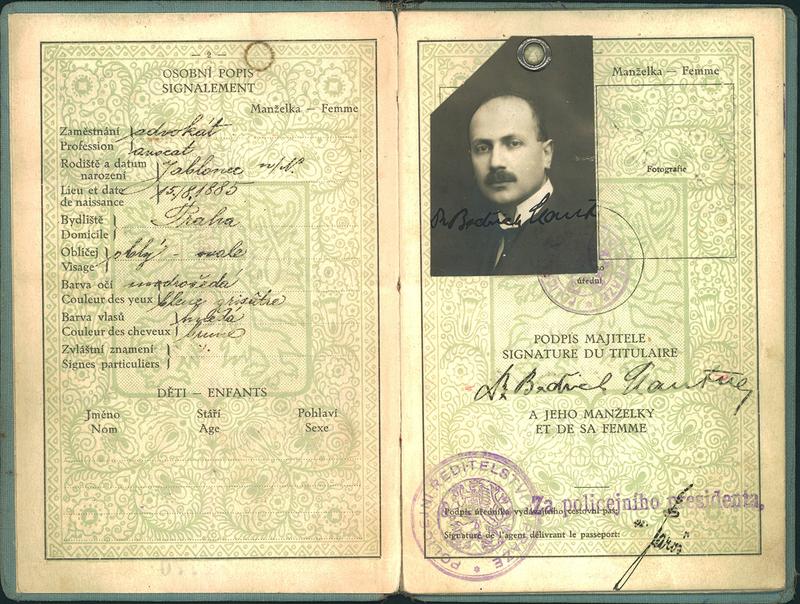 — 2 —
OSOBNÍ POPIS
SIGNALEMENT
Manželka — Femme
Zaměstnání advokát
Profession avocat
Rodiště a datum narození Jablonec n/N.
Lieu et date de naissance 15/8.1885
Bydliště
Domicile
Praha
Obličej
Visage
oblý - ovale
Barva očí modrošedá
Couleur des yeux bleu grisâtre
Barva vlasů hnědá
Couleur des cheveux brune
Zvláštní znamení
Signes particuliers
DĚTI — ENFANTS
Jméno Stáří Pohlaví
Nom Age Sexe
Manželka — Femme
Fotografie
Dr Bedřich
úřední
PODPIS MAJITELE
SIGNATURE DU TITULAIRE
Dr Bedřich
A JEHO MANŽELKY
ET DE SA FEMME
POLICEJNÍ ŘEDITELSTVÍ V PRAZE
Za policejního presidenta,
Podpis úředníka vydávajícího cestovní pas:
Signature de l'agent délivrant le passeport: